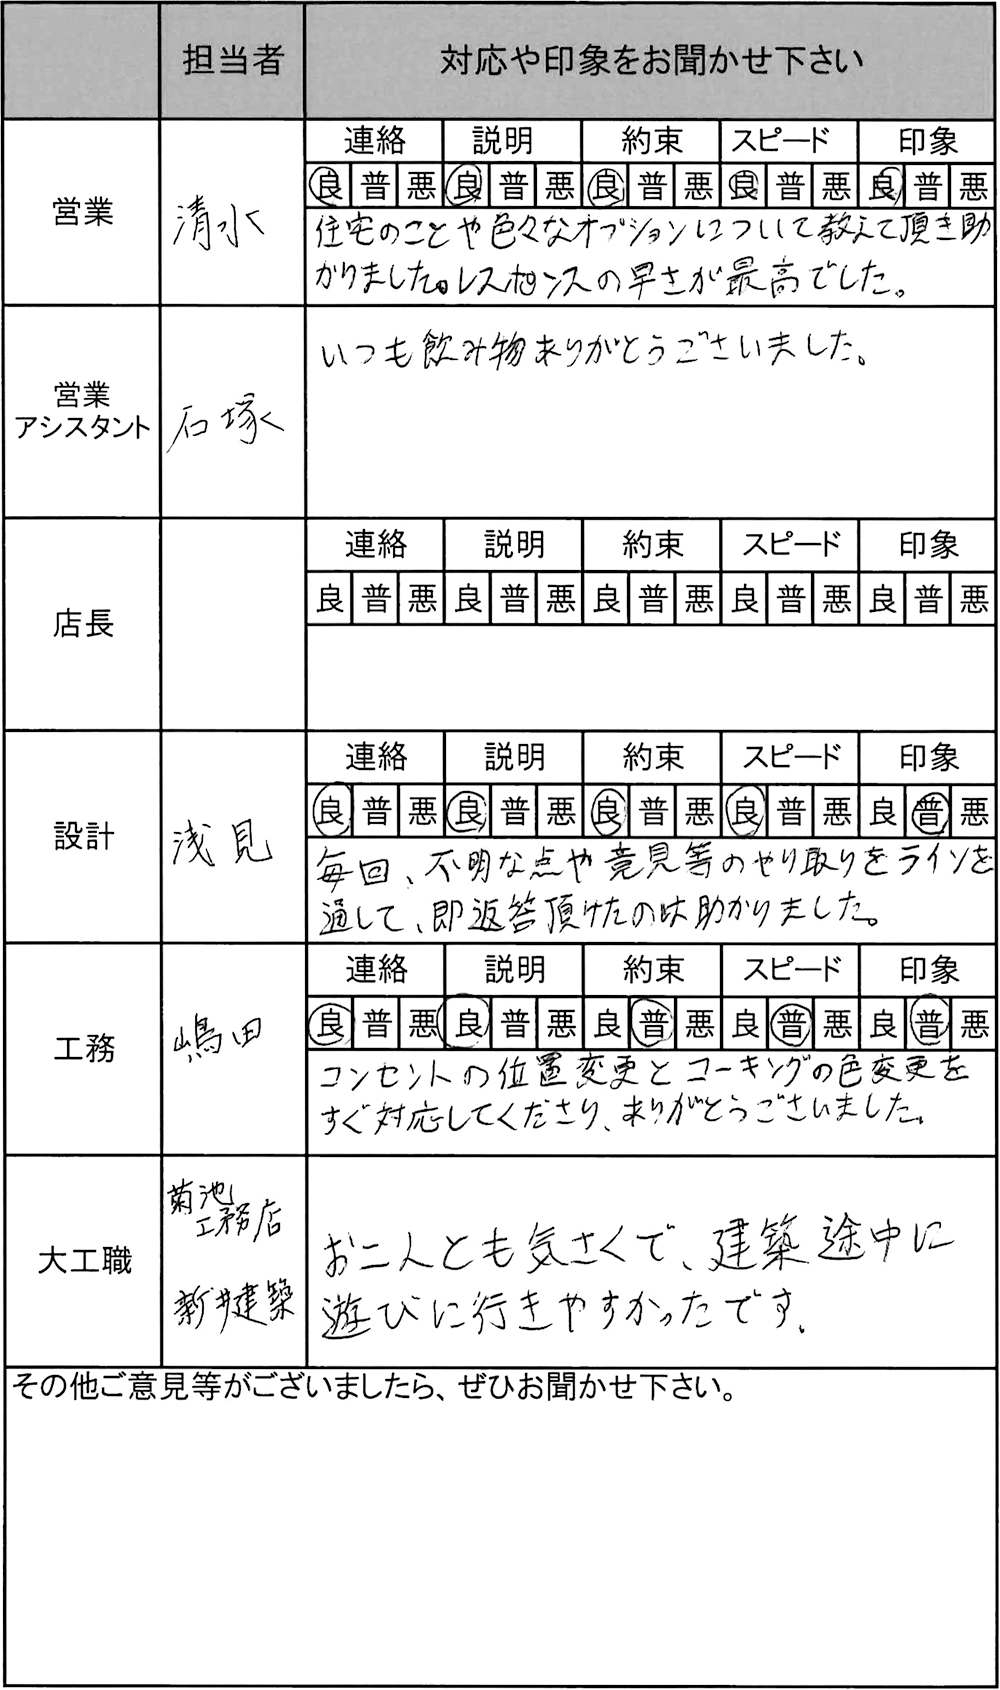 担当者 対応や印象をお聞かせ下さい
営業 清水
連絡 説明 約束 スピード 印象
良 普 悪 良 普 悪 良 普 悪 良 普 悪 良 普 悪
住宅のことや色々なオプションについて教えて頂き助
かりました。レスポンスの早さが最高でした。
営業
アシスタント
石塚
いつも飲み物ありがとうございました。
店長
連絡 説明 約束 スピード 印象
良 普 悪 良 普 悪 良 普 悪 良 普 悪 良 普 悪
設計 浅見
連絡 説明 約束 スピード 印象
良 普 悪 良 普 悪 良 普 悪 良 普 悪 良 普 悪
毎回、不明な点や意見等のやり取りをラインを
通して、即返答頂けたのは助かりました。
工務 嶋田
連絡 説明 約束 スピード 印象
良 普 悪 良 普 悪 良 普 悪 良 普 悪 良 普 悪
コンセントの位置変更とコーキングの色変更を
すぐ対応してくださり、ありがとうございました。
大工職
菊池
工務店
新井建築
お二人とも気さくで、建築途中に
遊びに行きやすかったです。
その他ご意見等がございましたら、ぜひお聞かせ下さい。